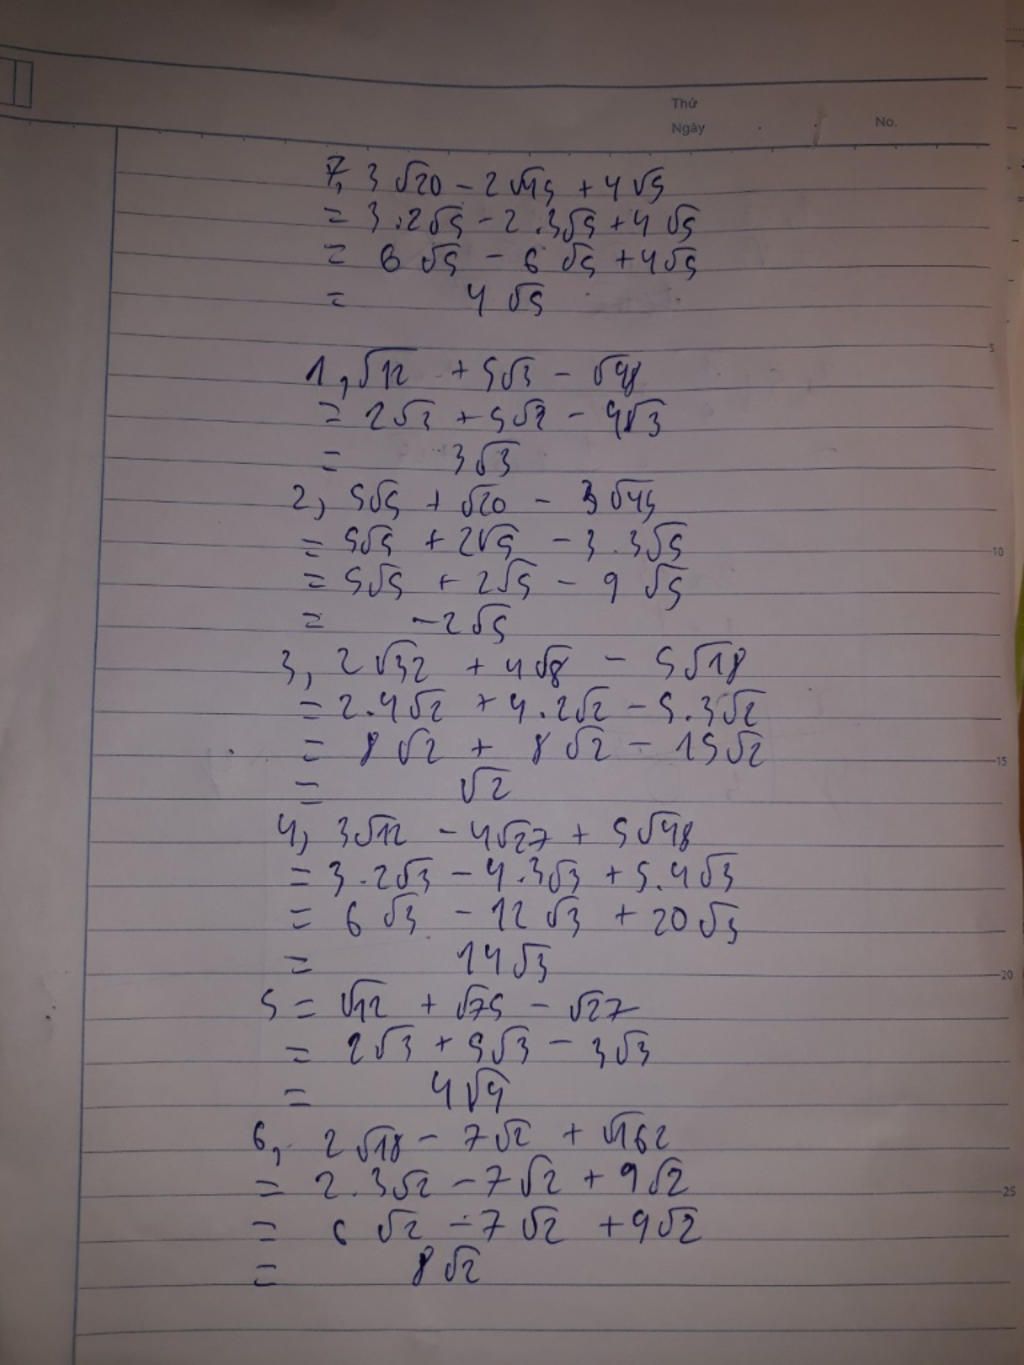 Thứ
Ngày No.
7, 3√20 - 2√45 + 4√5
= 3.2√5 - 2.3√5 + 4√5
= 6√5 - 6√5 + 4√5
= 4√5
5
1, √12 + 5√3 - √48
= 2√3 + 5√3 - 4√3
= 3√3
2, 5√5 + √20 - 3√45
= 5√5 + 2√5 - 3.3√5
10
= 5√5 + 2√5 - 9√5
= -2√5
3, 2√32 + 4√8 - 5√18
= 2.4√2 + 4.2√2 - 5.3√2
= 8√2 + 8√2 - 15√2
15
= √2
4, 3√12 - 4√27 + 5√48
= 3.2√3 - 4.3√3 + 5.4√3
= 6√3 - 12√3 + 20√3
= 14√3
20
5 = √12 + √75 - √27
= 2√3 + 5√3 - 3√3
= 4√4
6, 2√18 - 7√2 + √162
= 2.3√2 - 7√2 + 9√2
25
= 6√2 - 7√2 + 9√2
= 8√2